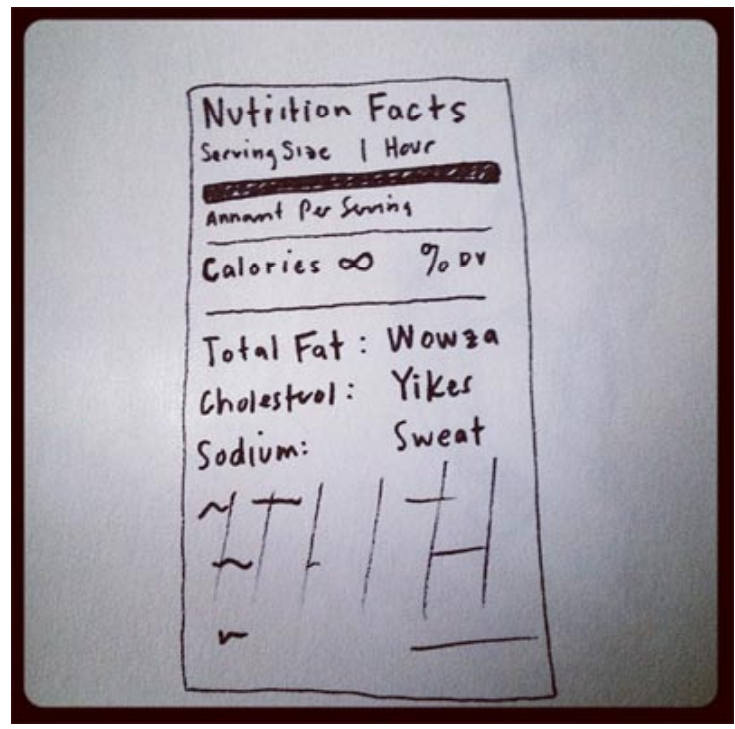 Nutrition Facts
Serving Size 1 Hour
Amount Per Serving
Calories ∞ % DV
Total Fat: Wowza
Cholestrol: Yikes
Sodium: Sweat